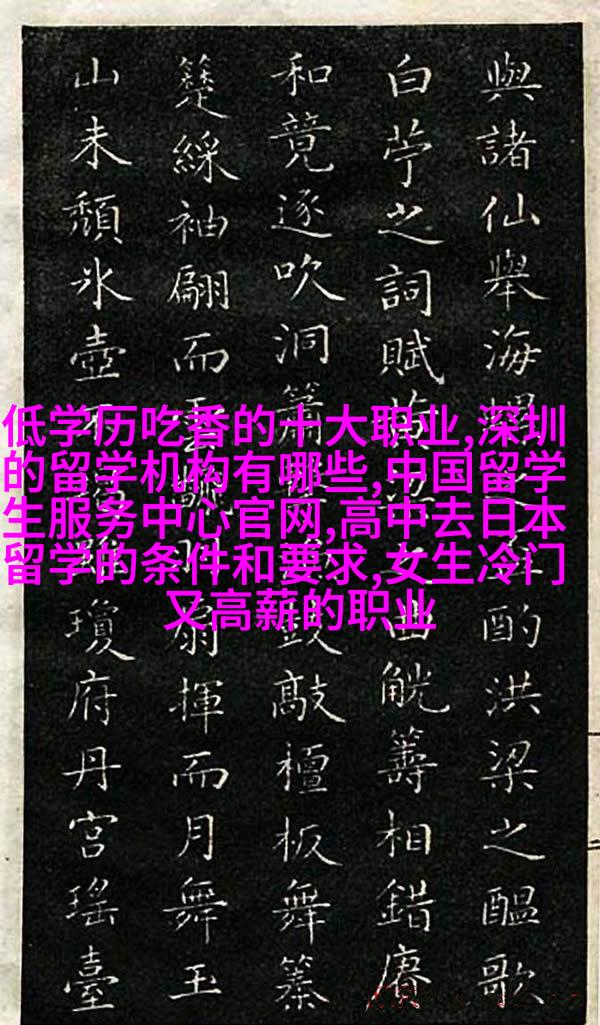 低学历吃香的十大职业,深圳
的留学机构有哪些,中国留学
生服务中心官网,高中去日本
留学的条件和要求,女生冷门
又高薪的职业
與諸仙舉海酌洪梁之醖歌
白苧之詞賦曲觥籌相錯賡
和竟逐吹洞簫鼓敲檀板舞
綵袖翩而扇揮而月舞玉
山未頹氷壺瓊府丹宮瑤臺